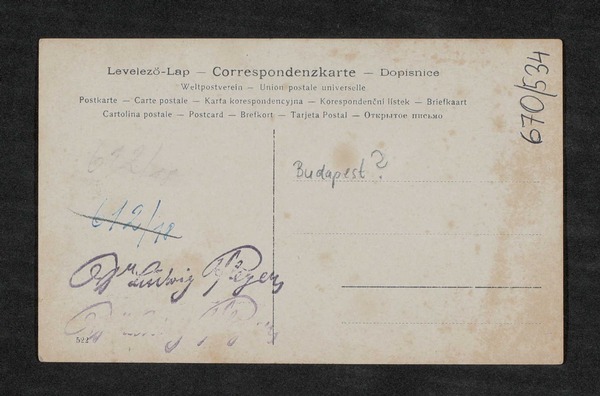 Levelező-Lap — Correspondenzkarte — Dopisnice
Weltpostverein — Union postale universelle
Postkarte — Carte postale — Karta korespondencyjna — Korespondenční lístek — Briefkaart
Cartolina postale — Postcard — Brefkort — Tarjeta Postal — Открытое письмо
670/534
Budapest?
612/18
Dr. Ludwig
522